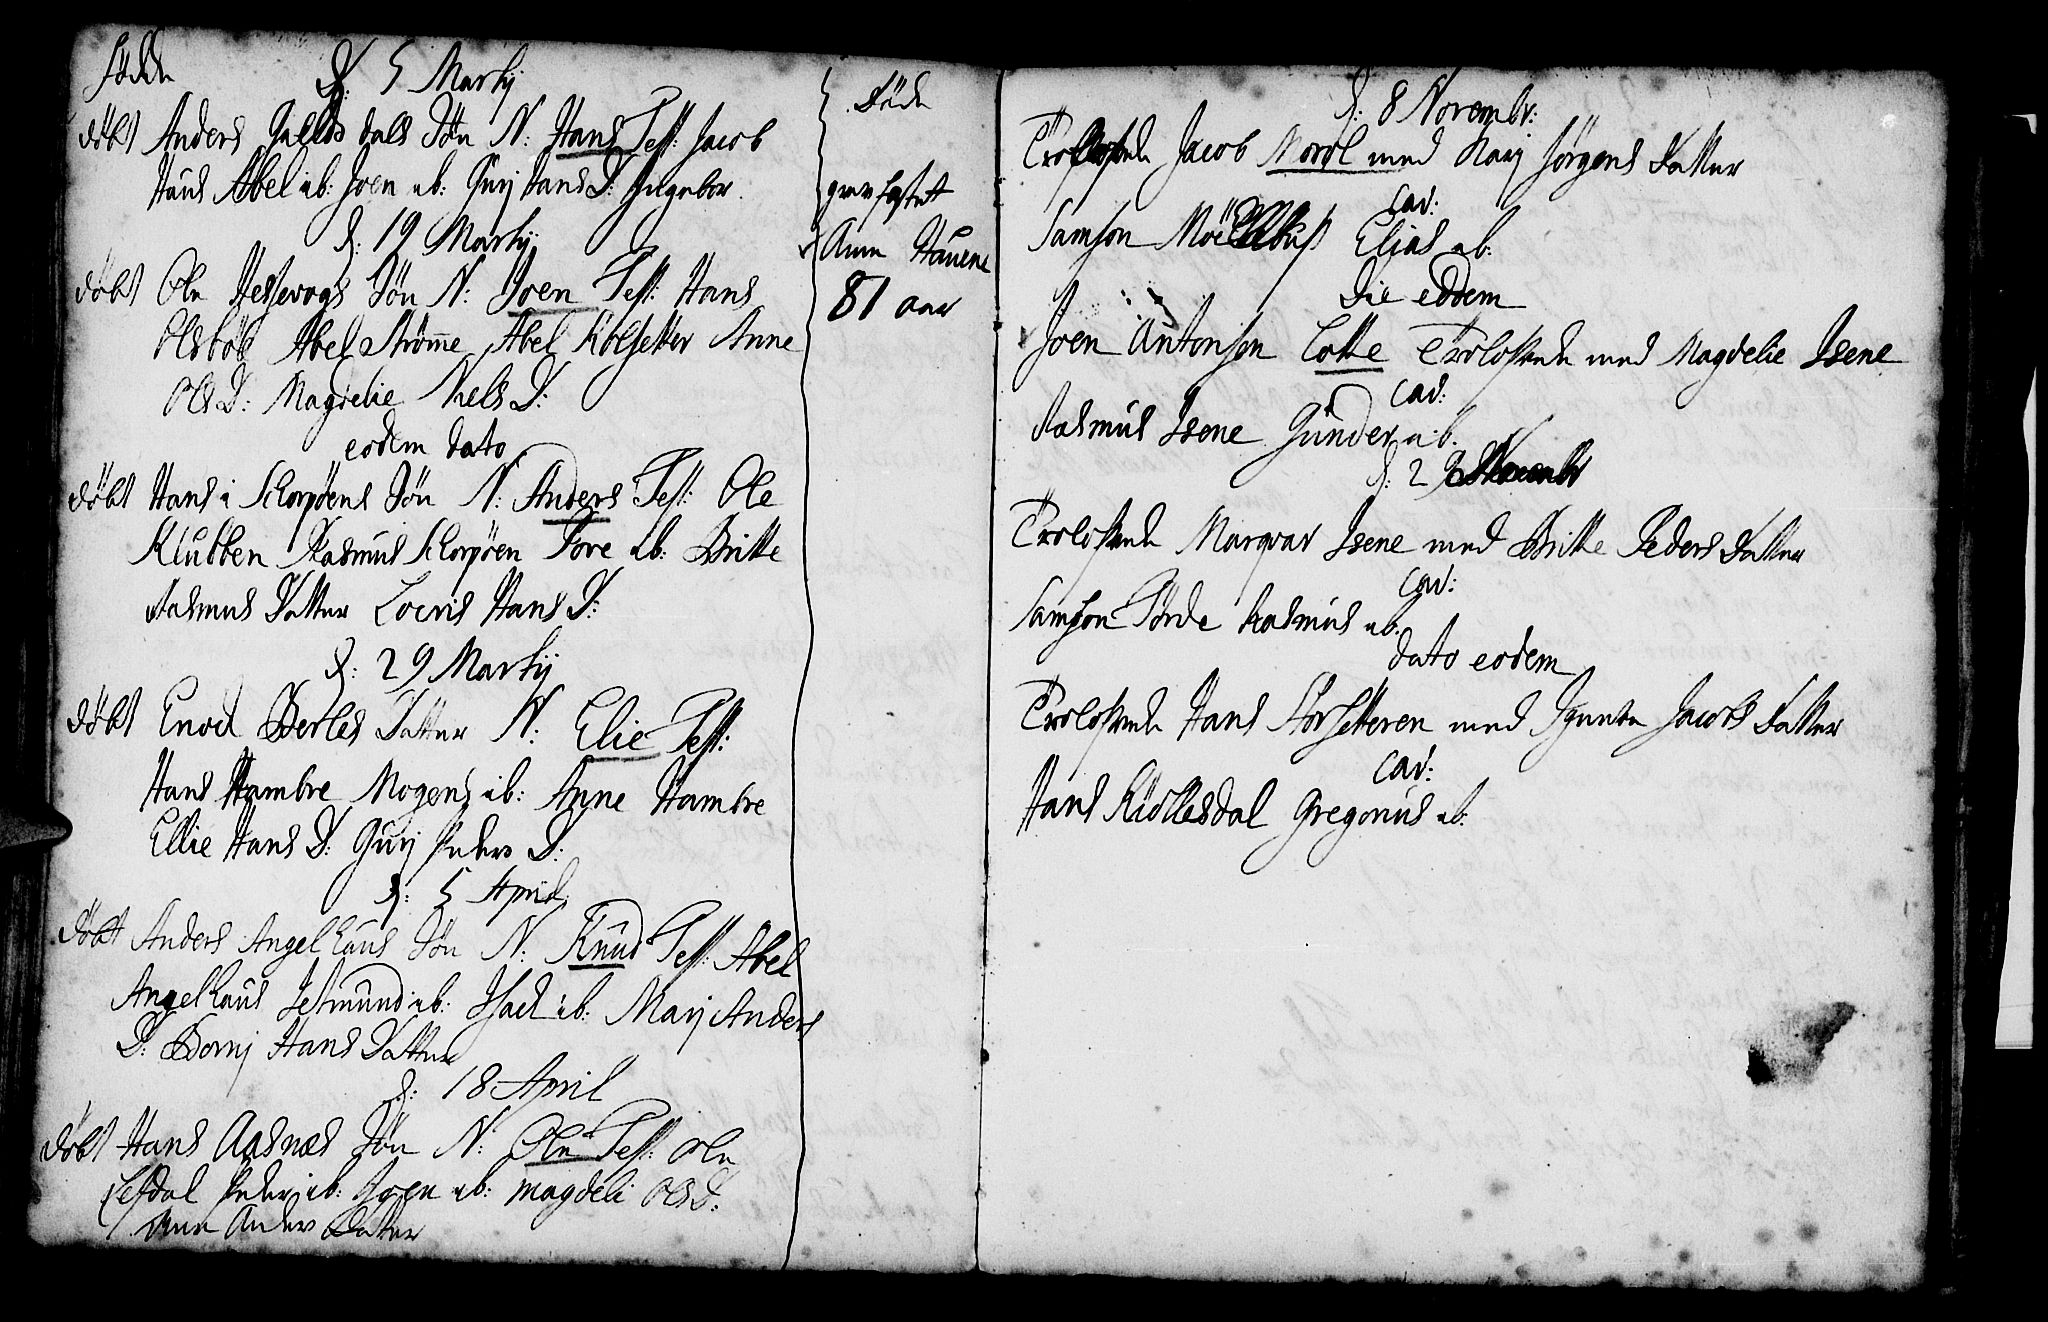 födde
d: 5 Martij
döbt Anders Gieldsdals Sön N: Hans Test: Jacob
Haus Abel ib: Joen ib: Gurj Hans D: Ingebor
d: 19 Martij
döbt Ole Hessevogs Sön N: Joen Test: Hans
Olsböe Abel Strömme Abel Kolsetter Anne
Ols D: Magdelie Nels D:
eodem dato
döbt Hans i Schorpöens Sön N: Anders Test: Ole
Klubben Rasmus Schorpöen Tore ib: Britte
Rasmus Datter Loeris Hans D:
d: 29 Martij
döbt Enoch Berles Datter N: Elie Test:
Hans Hambre Mogens ib: Anne Hambre
Ellie Hans D: Gurj Peders D:
d: 5 April
döbt Anders Angelhaus Sön N: Knud Test: Abel
Angelhaus Jetmund ib: Isach ib: Marj Anders
D: Bornj Hans Datter
d: 18 April
döbt Hans Aasnæs Sön N: Ole Test: Ole
Lefdal Peder ib: Joen ib: magdeli Ols D:
Ane Anders Datter
Döde
grav fæstet
Ane Hauene
81 aar
d: 8 Novembr:
Trolofvede Jacob Morol med Karj Jörgens Datter
cav:
Samson Elias ib.
die eodem
Joen Antonsen Lotte Trolofvede med Magdelie Isene
cav:
Rasmus Isene Gunder ib.
d: 29 Novembr
Trolofvede Marqvar Isene med Britte Peders Datter
cav:
Samson Förde Rasmus ib.
dato eodem
Trolofvede Hans Storsetteren med Jacobs Datter
cav:
Hans Kiöllesdal Gregorius ib: